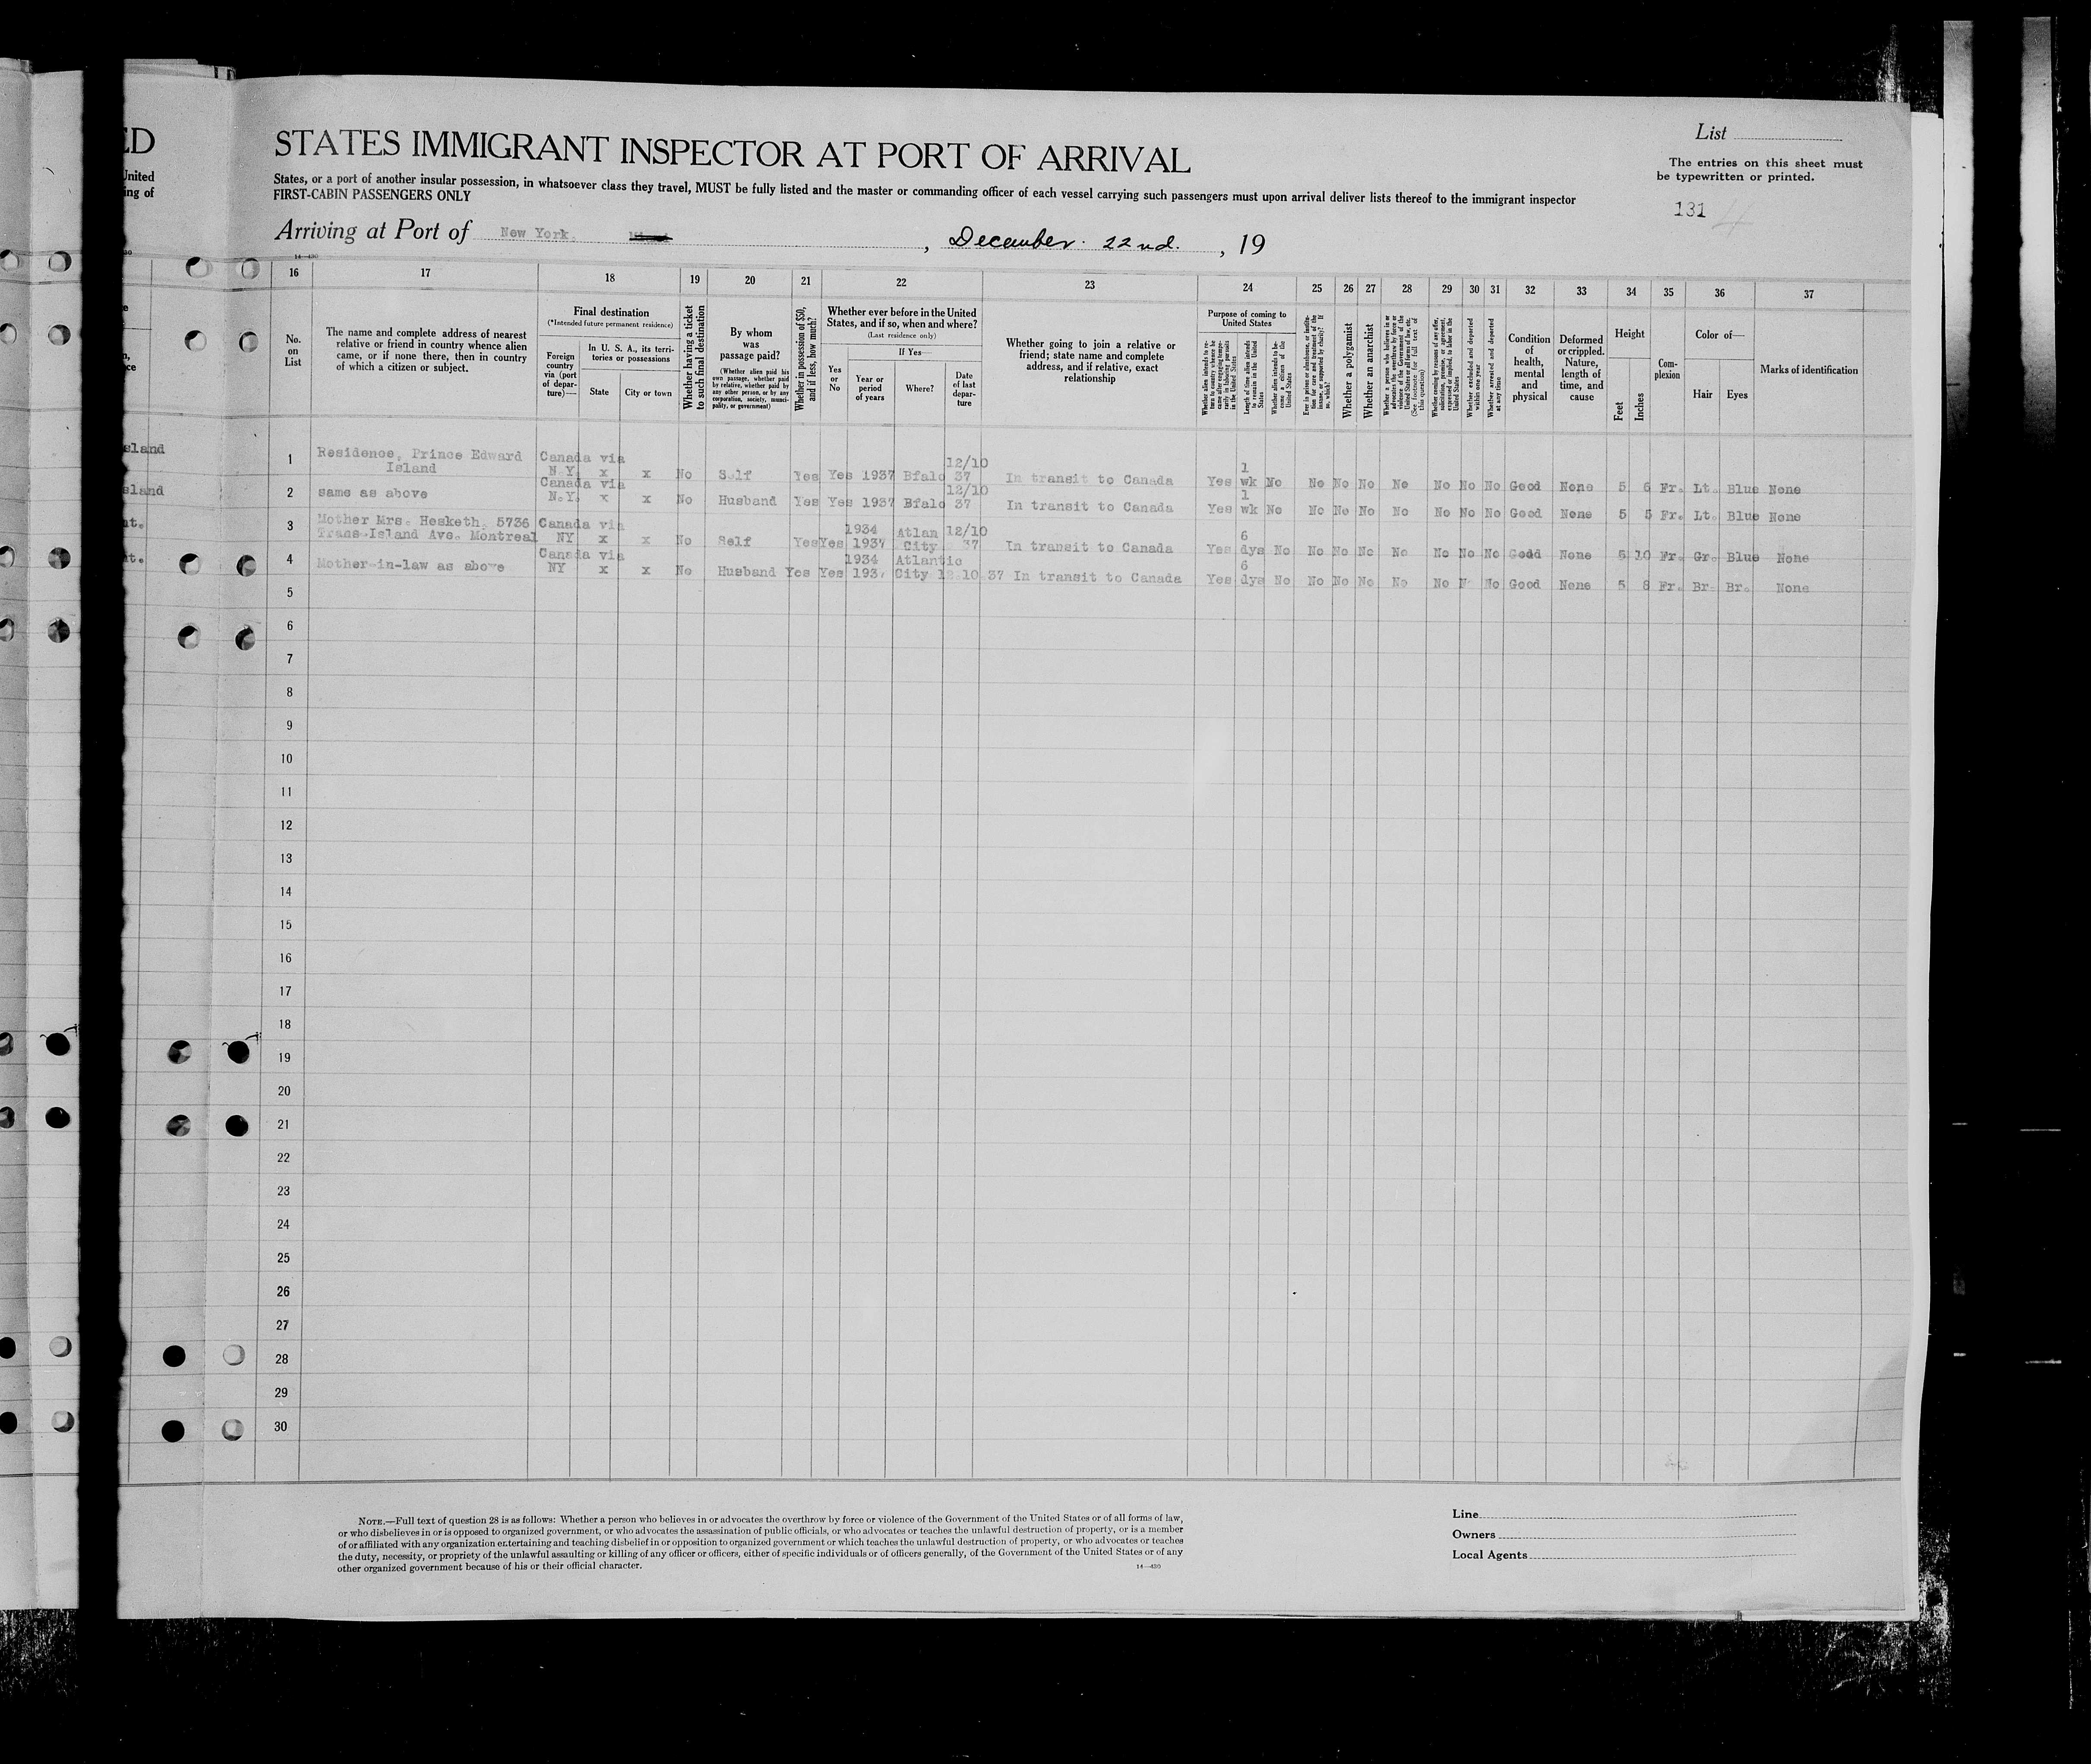 ED
United
ing of
STATES IMMIGRANT INSPECTOR AT PORT OF ARRIVAL
States, or a port of another insular possession, in whatsoever class they travel, MUST be fully listed and the master or commanding officer of each vessel carrying such passengers must upon arrival deliver lists thereof to the immigrant inspector
FIRST-CABIN PASSENGERS ONLY
List
The entries on this sheet must
be typewritten or printed.
131 4
Arriving at Port of New York. , December. 22nd. , 19
14—430
16 17 18 19 20 21 22 23 24 25 26 27 28 29 30 31 32 33 34 35 36 37
No.
on
List
The name and complete address of nearest
relative or friend in country whence alien
came, or if none there, then in country
of which a citizen or subject.
Final destination
(*Intended future permanent residence)
Foreign
country
via (port
of depar-
ture)—
In U. S. A., its terri-
tories or possessions
State City or town
Whether having a ticket
to such final destination
By whom
was
passage paid?
(Whether alien paid his
own passage, whether paid
by relative, whether paid by
any other person, or by any
corporation, society, munici-
pality, or government)
Whether in possession of $50,
and if less, how much?
Whether ever before in the United
States, and if so, when and where?
(Last residence only)
Yes
or
No
If Yes—
Year or
period
of years
Where?
Date
of last
depar-
ture
Whether going to join a relative or
friend; state name and complete
address, and if relative, exact
relationship
Purpose of coming to
United States
Whether alien intends to re-
turn to country whence he
came after engaging tempo-
rarily in laboring pursuits
in the United States
Length of time alien intends
to remain in the United
States
Whether alien intends to be-
come a citizen of the
United States
Ever in prison or almshouse, or institu-
tion for care and treatment of the
insane, or supported by charity? If
so, which?
Whether a polygamist
Whether an anarchist
Whether a person who believes in or
advocates the overthrow by force or
violence of the Government of the
United States or all forms of law, etc.
(See footnote for full text of
this question)
Whether coming by reasons of any offer,
solicitation, promise, or agreement,
expressed or implied, to labor in the
United States
Whether excluded and deported
within one year
Whether arrested and deported
at any time
Condition
of
health,
mental
and
physical
Deformed
or crippled.
Nature,
length of
time, and
cause
Height
Feet Inches
Com-
plexion
Color of—
Hair Eyes
Marks of identification
sland
1 Residence, Prince Edward Island Canada via N.Y. x x No Self Yes Yes 1937 Bfalo 12/10 37 In transit to Canada Yes 1 wk No No No No No No No No Good None 5 6 Fr. Lt. Blue None
sland
2 same as above Canada via N.Y. x x No Husband Yes Yes 1937 Bfalo 12/10 37 In transit to Canada Yes 1 wk No No No No No No No No Good None 5 5 Fr. Lt. Blue None
nt.
3 Mother Mrs. Hesketh, 5736 Trans-Island Ave. Montreal Canada via NY x x No Self Yes Yes 1934 1937 Atlan City 12/10 37 In transit to Canada Yes 6 dys No No No No No No No No Good None 5 10 Fr. Gr. Blue None
nt.
4 Mother-in-law as above Canada via NY x x No Husband Yes Yes 1934 1937 Atlantic City 12 10 37 In transit to Canada Yes 6 dys No No No No No No No No Good None 5 8 Fr. Br. Br. None
5
6
7
8
9
10
11
12
13
14
15
16
17
18
19
20
21
22
23
24
25
26
27
28
29
30
NOTE.—Full text of question 28 is as follows: Whether a person who believes in or advocates the overthrow by force or violence of the Government of the United States or of all forms of law,
or who disbelieves in or is opposed to organized government, or who advocates the assassination of public officials, or who advocates or teaches the unlawful destruction of property, or is a member
of or affiliated with any organization entertaining and teaching disbelief in or opposition to organized government or which teaches the unlawful destruction of property, or who advocates or teaches
the duty, necessity, or propriety of the unlawful assaulting or killing of any officer or officers, either of specific individuals or of officers generally, of the Government of the United States or of any
other organized government because of his or their official character.
14—430
Line
Owners
Local Agents